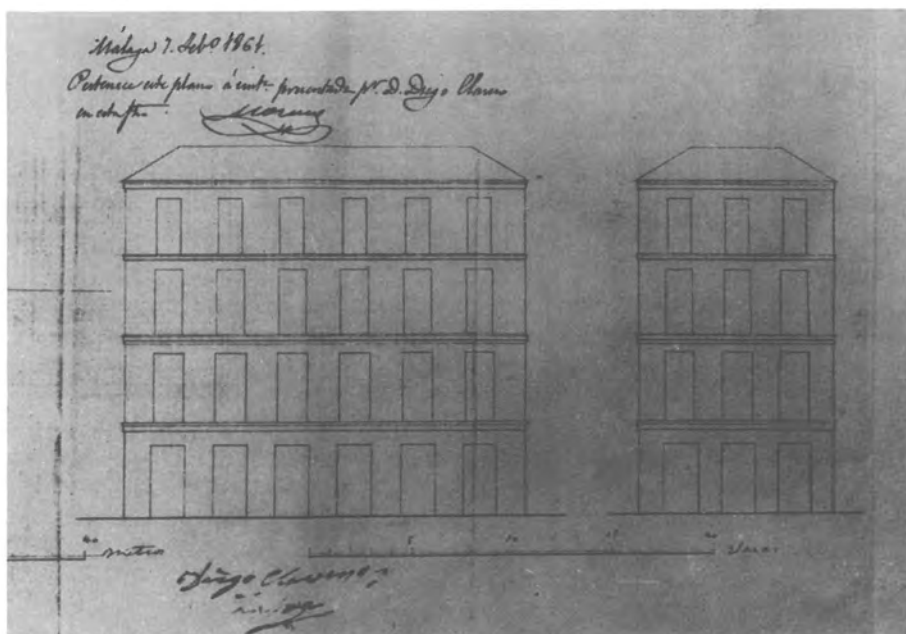 Málaga 7. Feb.º 1861.
Pertenece este plano á presentada pr. D. Diego Clavero
en esta fha
5 10 15 20
metros Varas
Diego Clavero